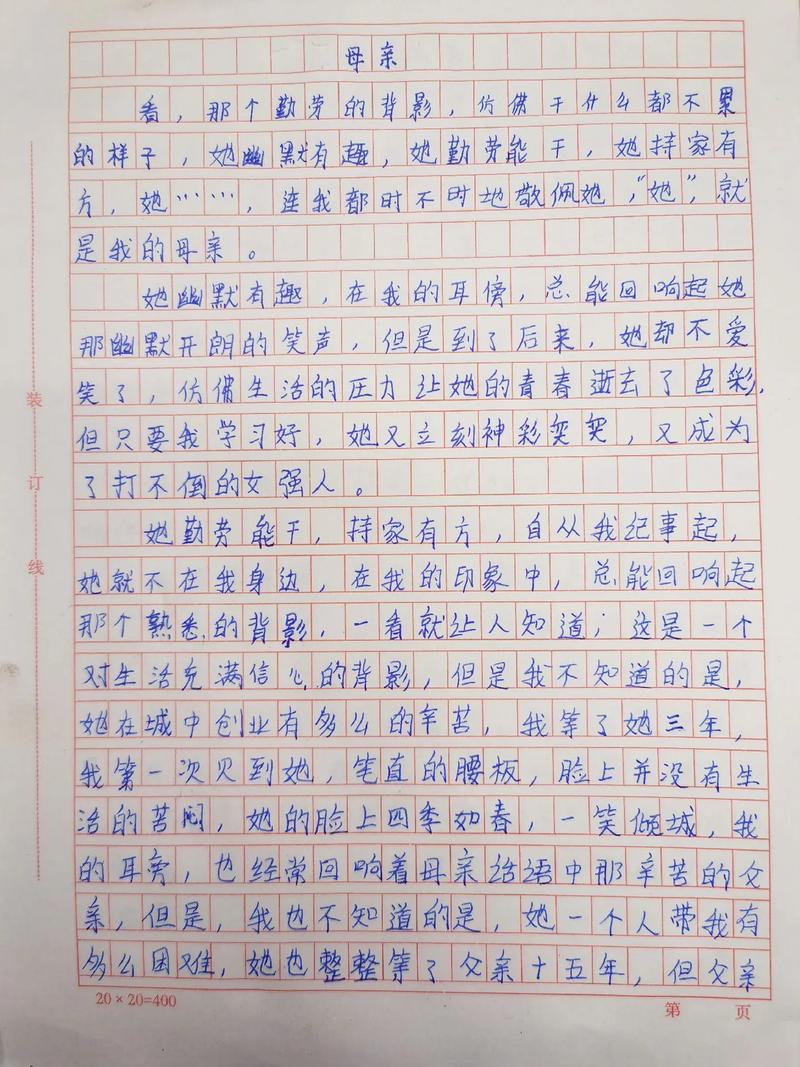 母亲
看，那个勤劳的背影，仿佛干什么都不累
的样子，她幽默有趣，她勤劳能干，她持家有
方，她……，连我都时不时地敬佩她，“她”，就
是我的母亲。
她幽默有趣，在我的耳傍，总能回响起她
那幽默开朗的笑声，但是到了后来，她却不爱
笑了，仿佛生活的压力让她的青春逝去了色彩，
但只要我学习好，她又立刻神彩奕奕，又成为
了打不倒的女强人。
她勤劳能干，持家有方，自从我纪事起，
她就不在我身边，在我的印象中，总能回响起
那个熟悉的背影，一看就让人知道；这是一个
对生活充满信心的背影，但是我不知道的是，
她在城中创业有多么的辛苦，我等了她三年，
我第一次见到她，笔直的腰板，脸上并没有生
活的苦闷，她的脸上四季如春，一笑倾城，我
的耳旁，也经常回响着母亲话语中那辛苦的父
亲，但是，我也不知道的是，她一个人带我有
多么困难，她也整整等了父亲十五年，但父亲
装
订
线
20×20=400
第 页